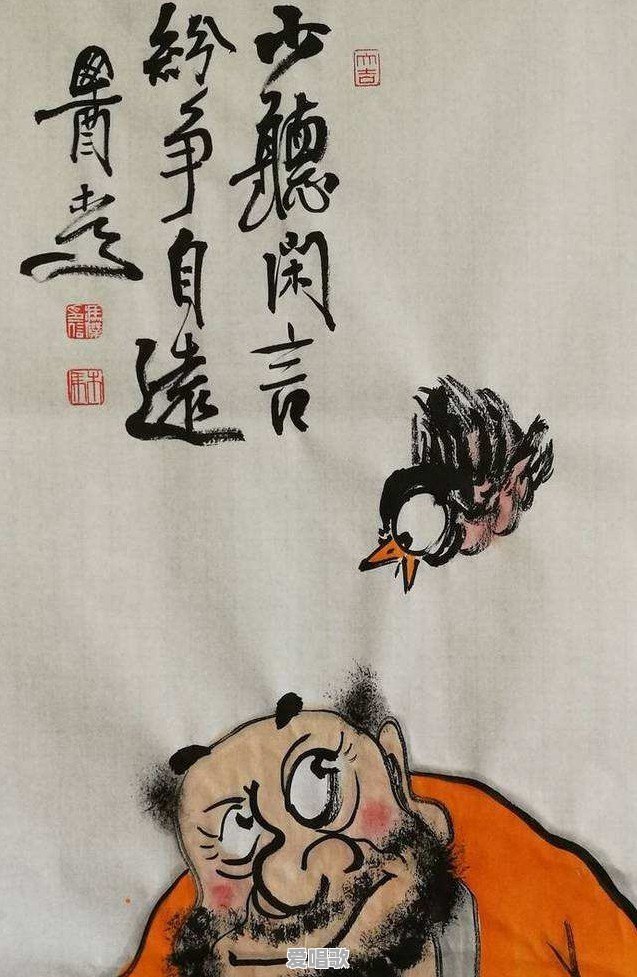 少聽閑言
紛爭自遠
大吉
爱唱歌